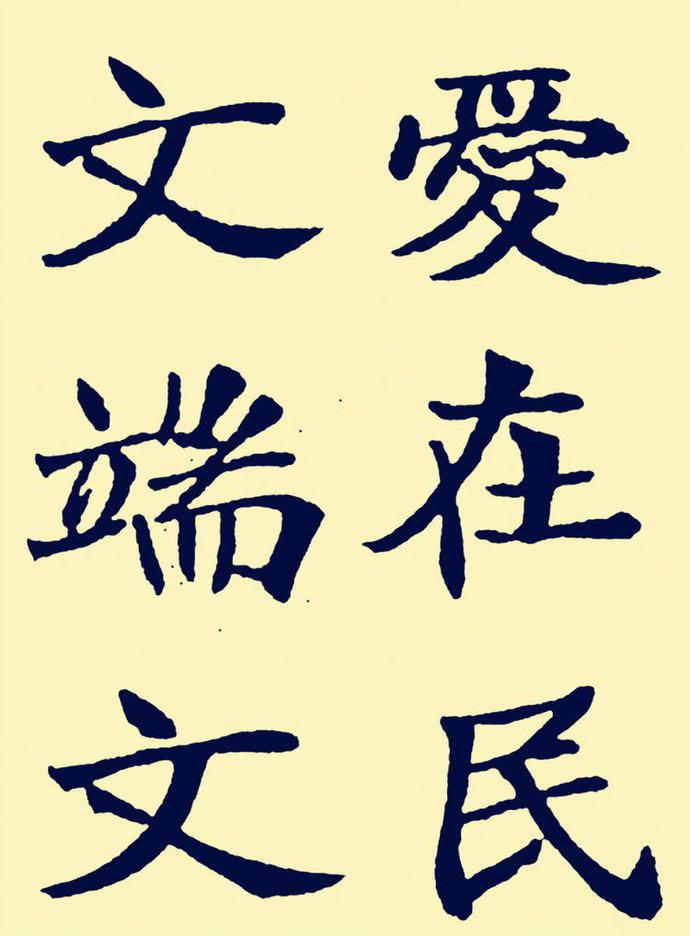 愛在民
文端文